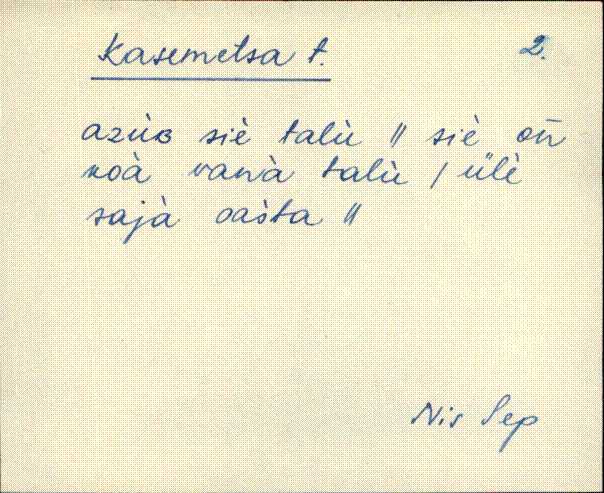 Kasemetsa t. 2.
azùʙ siè talù // siè on̄
koà vanà talù / ülè
sajà oàśta //
Nis Sep